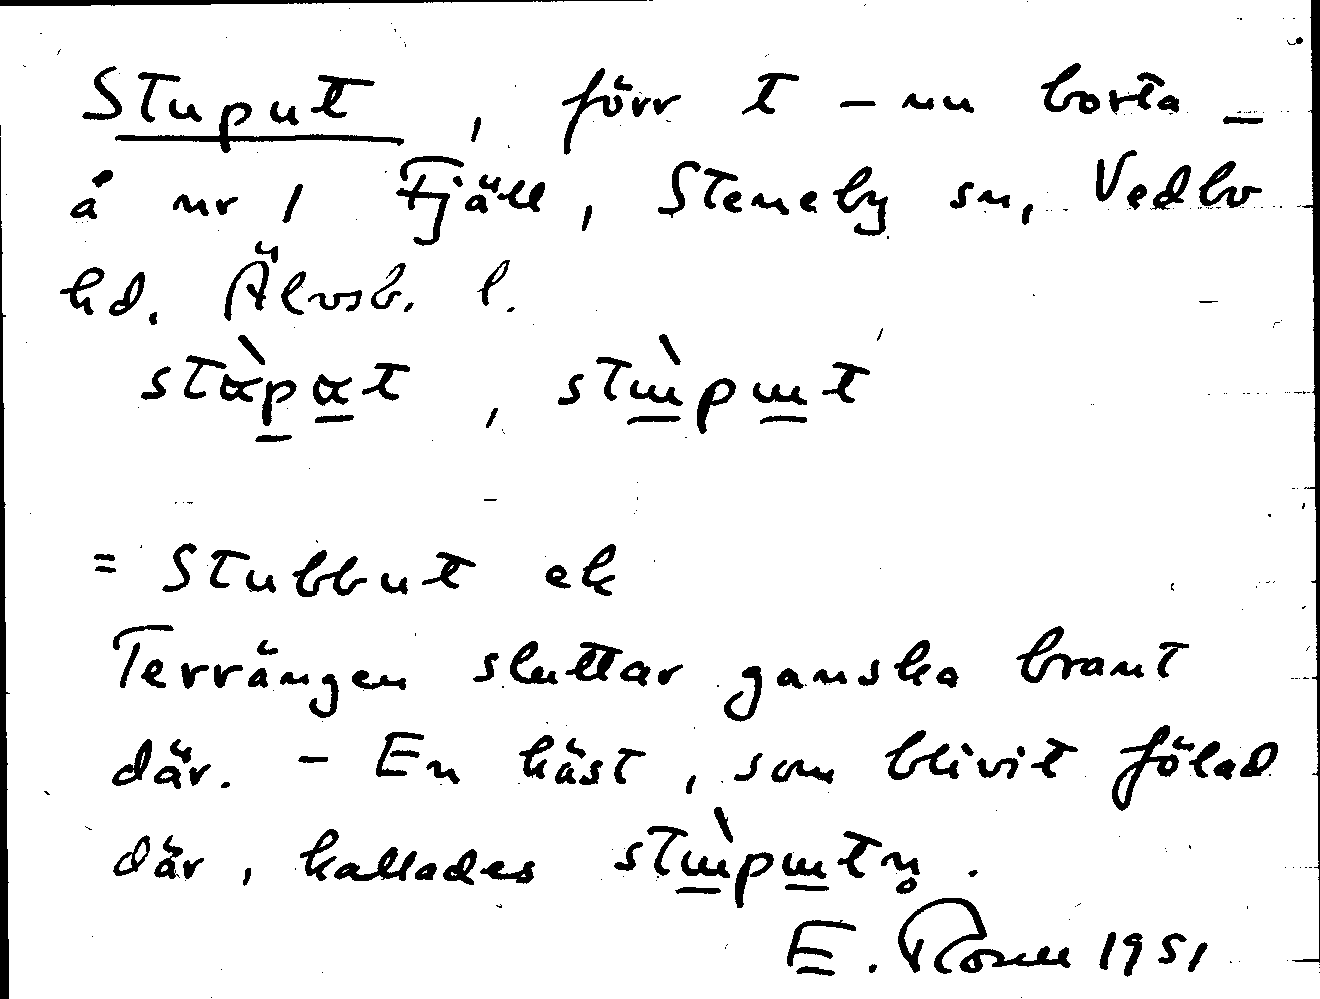 Stuput, förr t – nu borta –
å nr 1 Fjäll, Steneby sn, Vedbo
hd. Älvsb. l.
= Stubbut ek
Terrängen sluttar ganska brant
där. – En häst, som blivit fölad
där, kallades
E. Rosell 1951